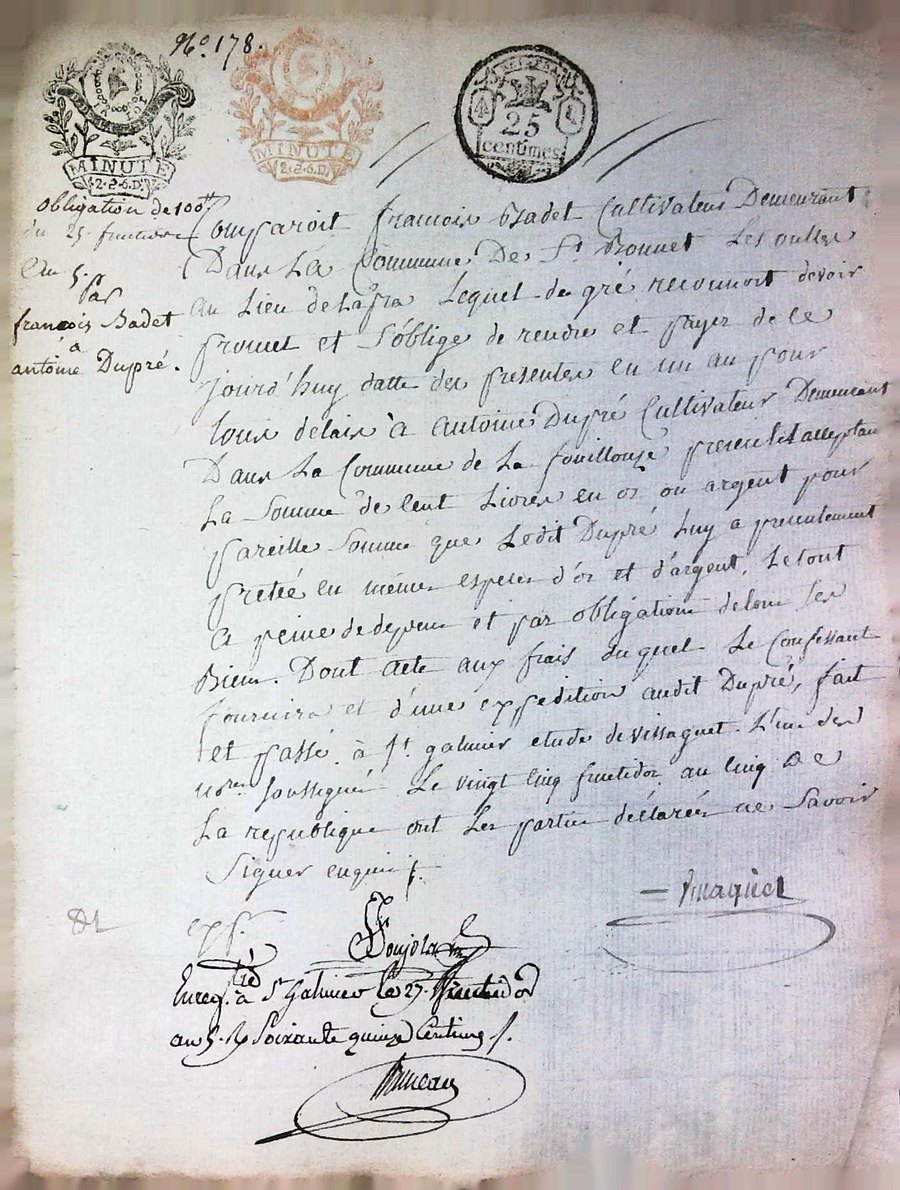 No. 178.
MINUTE
MINUTE
25
centimes
obligation de 100#
du 25 fructidor
an 5.
par
françois Badet
à
antoine Dupré.
Comparoit françois Badet Cultivateur Demeurant
Dans La Commune De St. Bonnet Les oulles
au Lieu de Lequel de gré reconnoit devoir
promet et S'oblige de rendre et payer de ce
jourd'huy datte des presentes en un an pour
tous delais à antoine Dupré Cultivateur Demeurant
Dans La Commune de La fouillouze present et acceptan
La Somme de Cent Livres en or ou argent pour
pareille Somme que Ledit Dupré Luy a presentement
pretée en mêmes especes d'or et d'argent, Le tout
a peine de depens et par obligation de tous Ses
Biens. Dont acte aux frais duquel Le Confessant
fournira et d'une expedition audit Dupré, fait
et passé à St. galmier etude de vissaguet L'un des
nores. soussigné Le vingt cinq fructidor an Cinq De
La republique ont Les parties déclarées ne Savoir
Signer enquis
expf.
Enregtré à St Galmier le 27. fructidor
an 5. R Soixante quinze Centimes